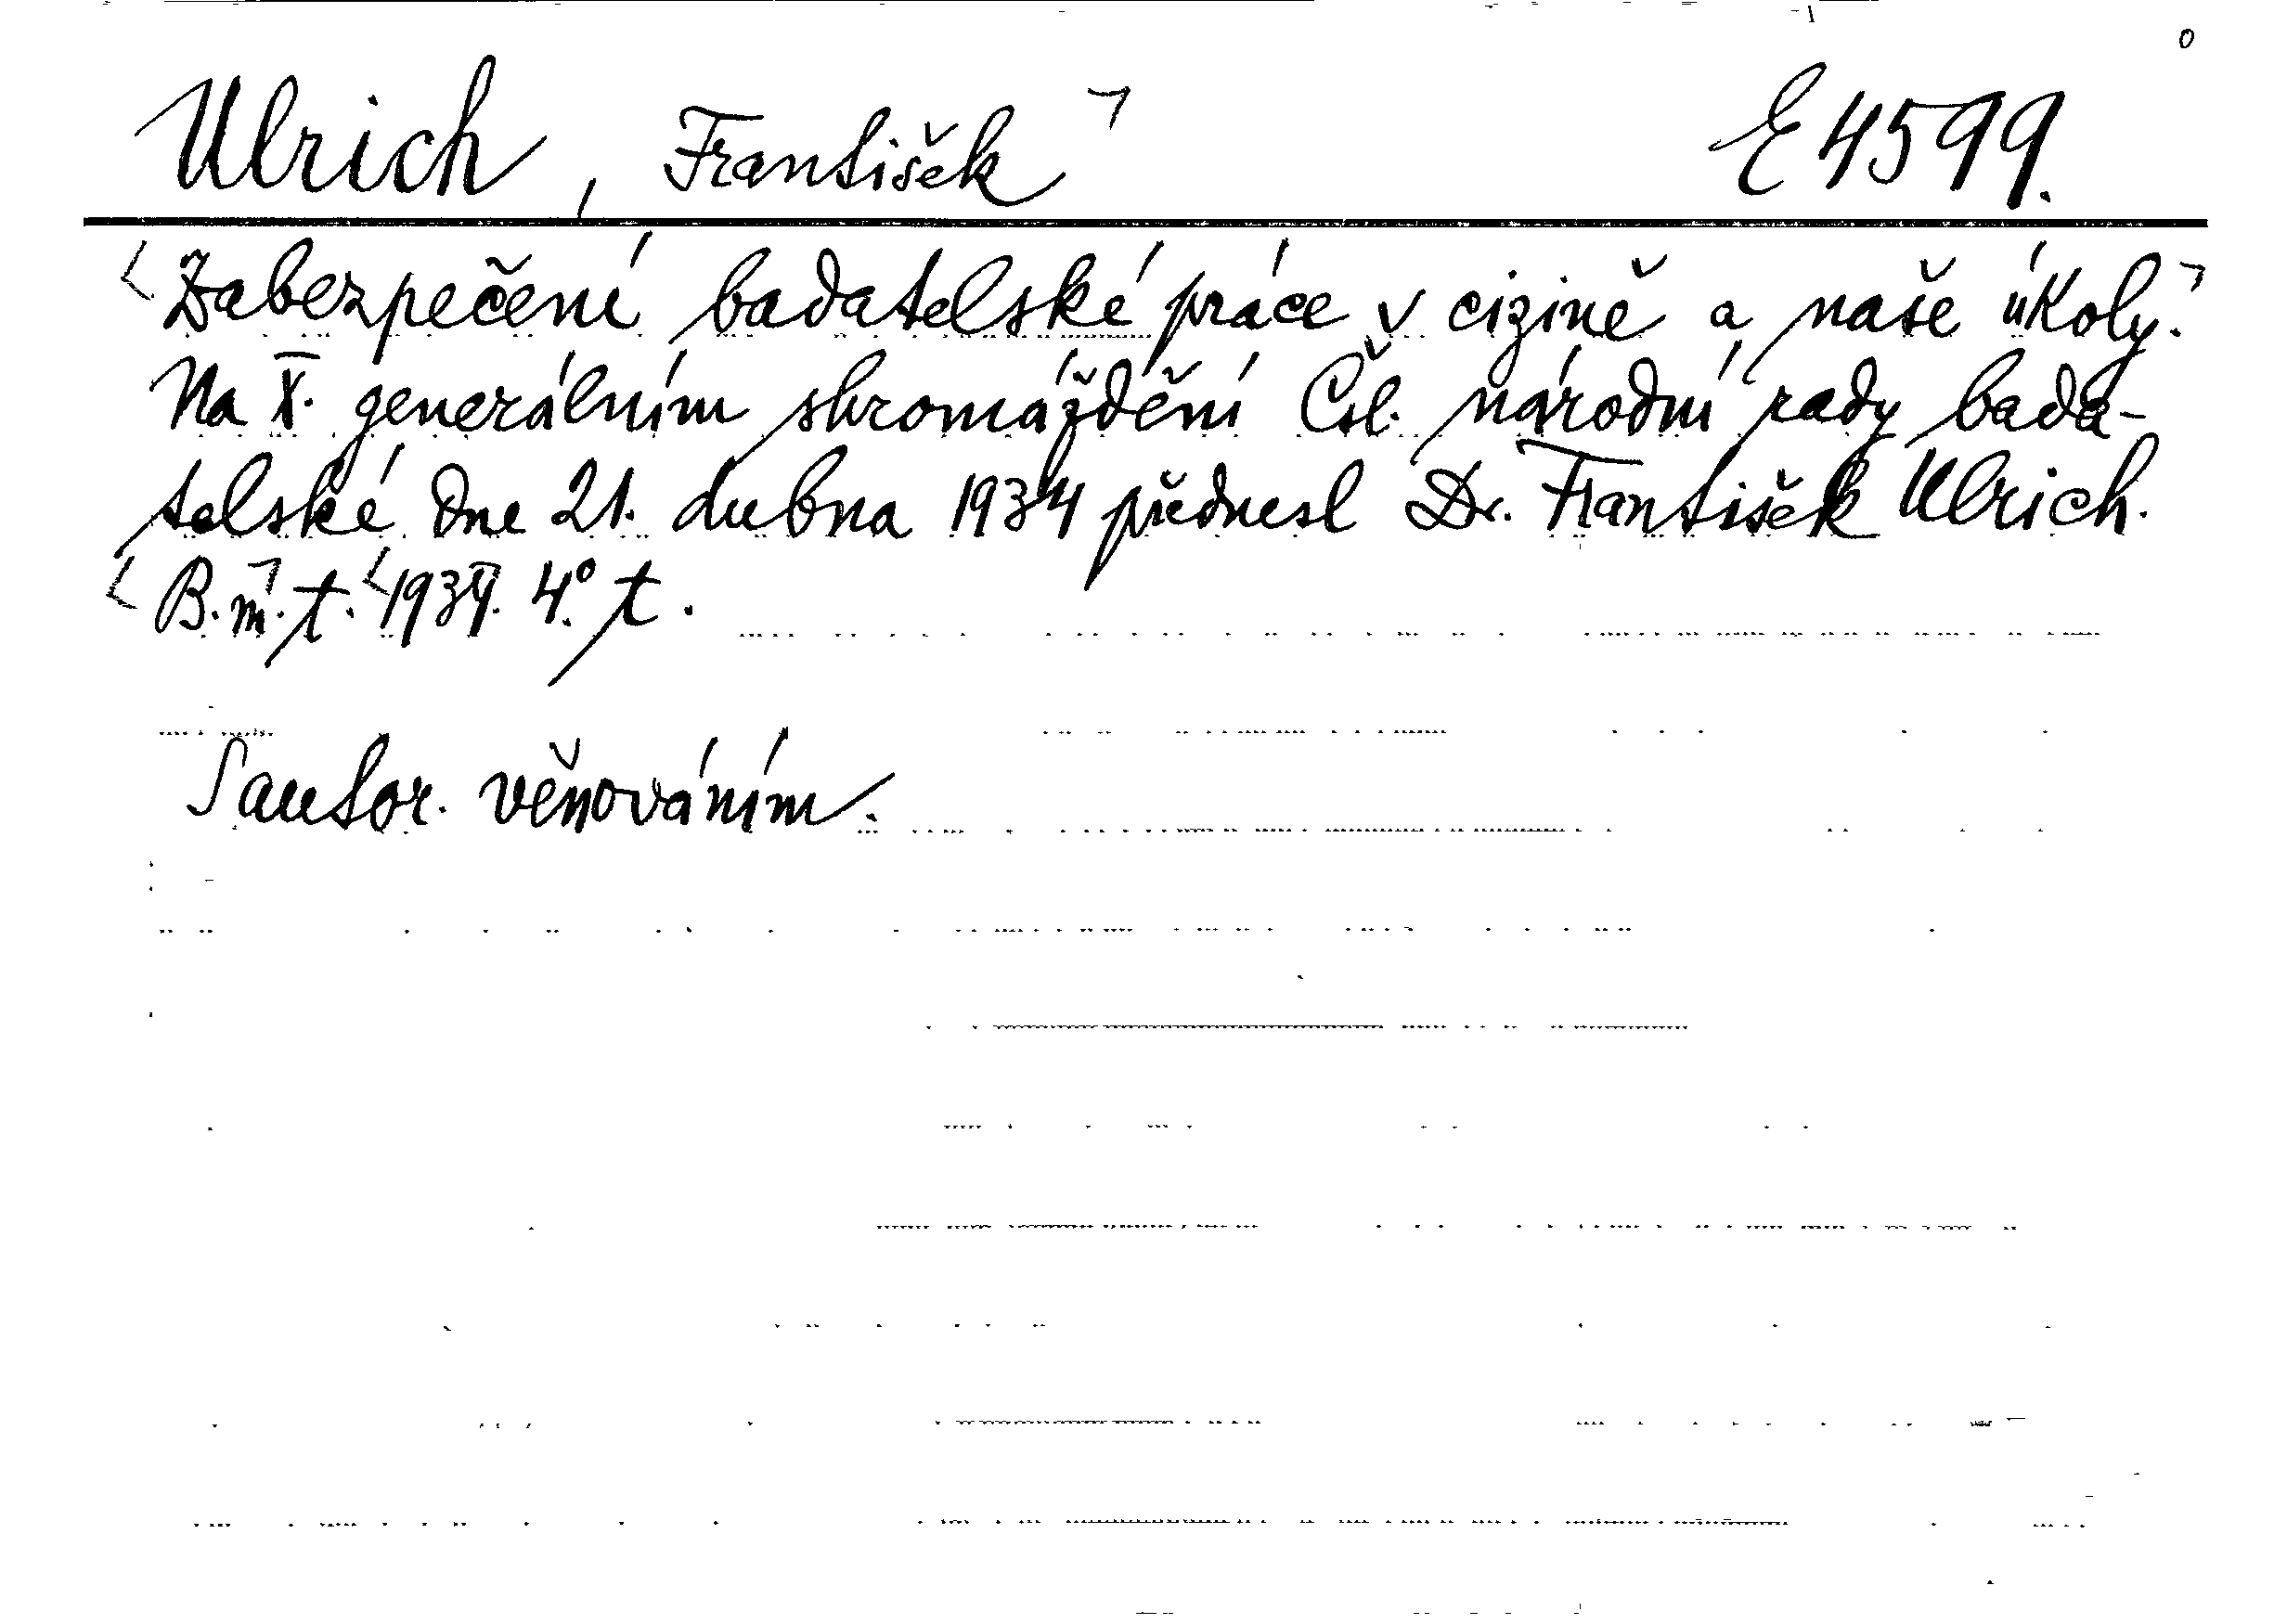 Ulrich, František E 4599.
Zabezpečení badatelské práce v cizině a naše úkoly.
Na X. generálním shromáždění Čsl. národní rady bada-
telské dne 21. dubna 1934 přednesl Dr. František Ulrich.
B. m. t. 1934. 4° t.
S autor. věnováním.